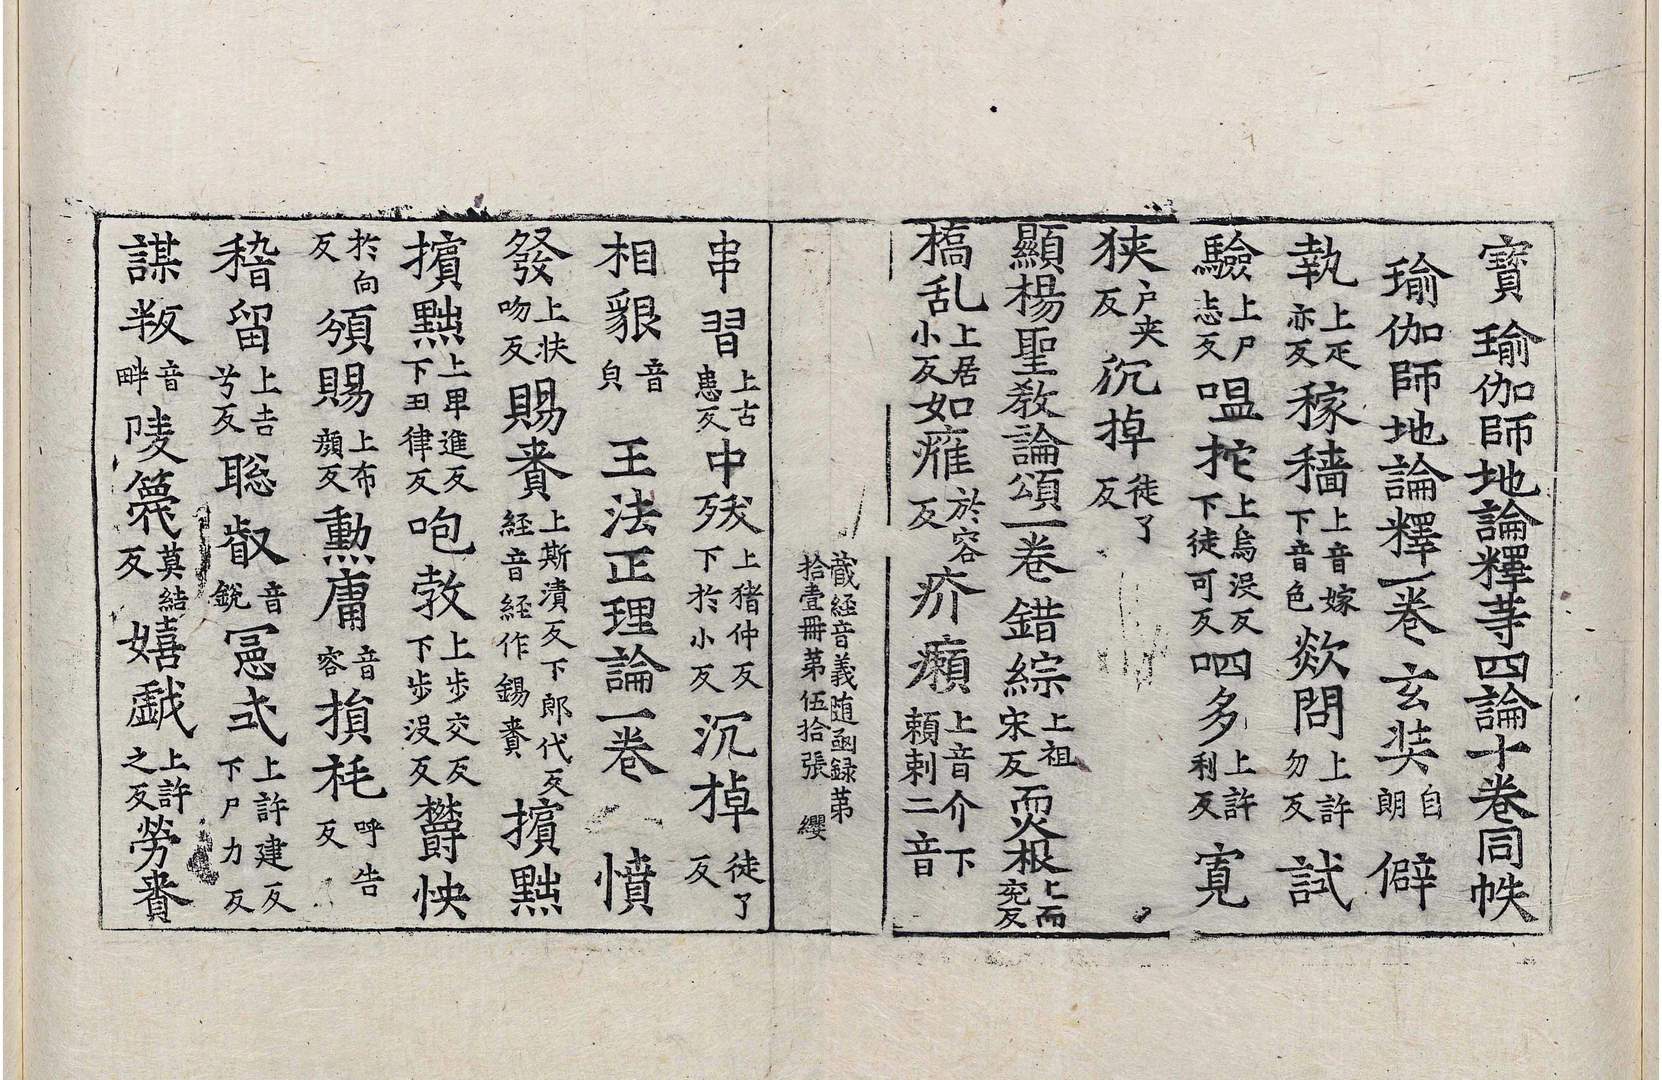 寳 瑜伽師地論釋等四論十卷同帙
瑜伽師地論釋一卷 玄奘 自朗 僻
執 上疋亦反 稼穡 上音嫁下音色 欻問 上許勿反 試
驗 上尸忐反 嗢拕 上烏没反下徒可反 呬多 上許利反 寛
狭 户夹反 沉掉 徒了反
顯楊聖教論頌一卷 錯綜 上祖宋反 耎根 上而兖反
撟乱 上居小反 如癰 於容反 疥癩 上音介下頼剌二音
藏経音義随函録第
拾壹冊第伍拾張 纓
串習 上古患反 中殀 上猪仲反下於小反 沉掉 徒了反
相貌 音皃 王法正理論一卷 憤
發 上扶吻反 賜賚 上斯漬反下郎代反経音経作錫賚 擯黜
擯黜 上卑進反下丑律反 咆教 上步交反下步没反 欝怏
於向反 頒賜 上布顔反 勲庸 音容 損秏 呼告反
稽留 上吉兮反 聡叡 音銳 憲式 上許建反下尸力反
謀叛 音畔 陵篾 莫結反 嬉戯 上許之反 勞賚